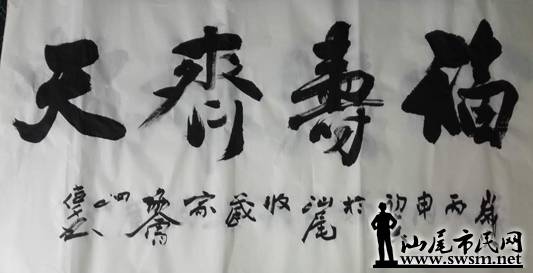 福壽齊天
歲丙申 於汕尾收藏家
汕尾市民网
www.swsm.net